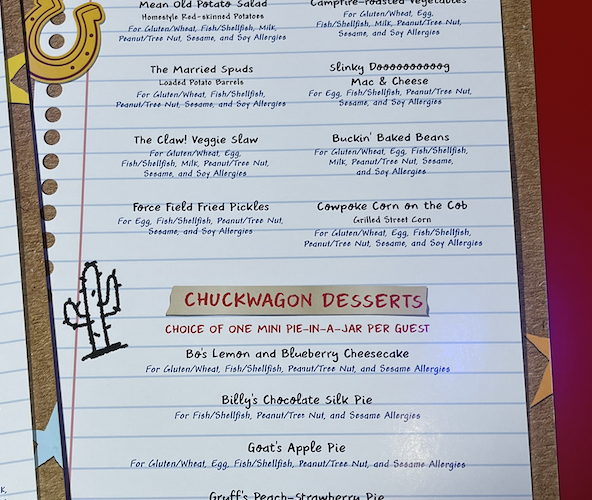 Mean Old Potato Salad
Homestyle Red-skinned Potatoes
For Gluten/Wheat, Fish/Shellfish, Milk,
Peanut/Tree Nut, Sesame, and Soy Allergies
Campfire-roasted Vegetables
For Gluten/Wheat, Egg,
Fish/Shellfish, Milk, Peanut/Tree Nut,
Sesame, and Soy Allergies
The Married Spuds
Loaded Potato Barrels
For Gluten/Wheat, Fish/Shellfish,
Peanut/Tree Nut, Sesame, and Soy Allergies
Slinky Doooooooooog
Mac & Cheese
For Egg, Fish/Shellfish, Peanut/Tree Nut,
Sesame, and Soy Allergies
The Claw! Veggie Slaw
For Gluten/Wheat, Egg,
Fish/Shellfish, Milk, Peanut/Tree Nut,
Sesame, and Soy Allergies
Buckin' Baked Beans
For Gluten/Wheat, Egg, Fish/Shellfish,
Milk, Peanut/Tree Nut, Sesame,
and Soy Allergies
Force Field Fried Pickles
For Egg, Fish/Shellfish, Peanut/Tree Nut,
Sesame, and Soy Allergies
Cowpoke Corn on the Cob
Grilled Street Corn
For Gluten/Wheat, Egg, Fish/Shellfish,
Peanut/Tree Nut, Sesame, and Soy Allergies
CHUCKWAGON DESSERTS
CHOICE OF ONE MINI PIE-IN-A-JAR PER GUEST
Bo's Lemon and Blueberry Cheesecake
For Gluten/Wheat, Fish/Shellfish, Peanut/Tree Nut, and Sesame Allergies
Billy's Chocolate Silk Pie
For Fish/Shellfish, Peanut/Tree Nut, and Sesame Allergies
Goat's Apple Pie
For Gluten/Wheat, Egg, Fish/Shellfish, Peanut/Tree Nut, and Sesame Allergies
Gruff's Peach-Strawberry Pie